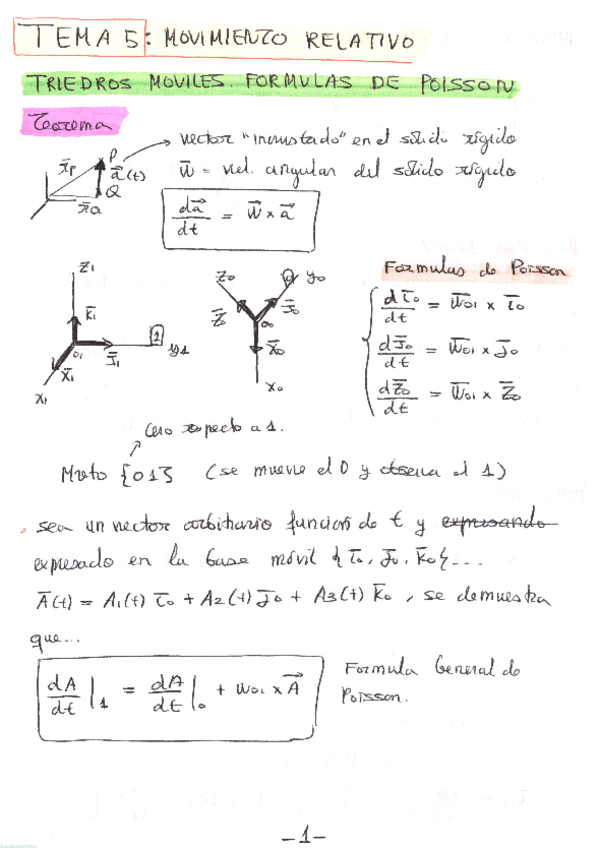 TEMA 5: MOVIMIENTO RELATIVO
TRIEDROS MOVILES. FORMULAS DE POISSON
Teorema
vector "incrustado" en el sólido rígido
w̄ = vel. angular del sólido rígido
P
x̄p
ā(t)
Q
x̄Q
da⃗/dt = w⃗ x a⃗
Formulas de Poisson
z1
k̄1
o1
j̄1
1
y1
x̄1
x1
z0
0
y0
z̄0
j̄0
o0
x̄0
x0
dī0/dt = w̄01 x ī0
dj̄0/dt = w̄01 x j̄0
dz̄0/dt = w̄01 x z̄0
Cero respecto a 1.
Mvto {01} (se mueve el 0 y observa el 1)
sea un vector arbitrario función de t y expresando
expresado en la base móvil {ī0, j̄0, k̄0}...
Ā(t) = A1(t) ī0 + A2(t) j̄0 + A3(t) k̄0, se demuestra
que...
dA/dt|1 = dA/dt|0 + w01 x A⃗
Formula General de
Poisson.
-1-